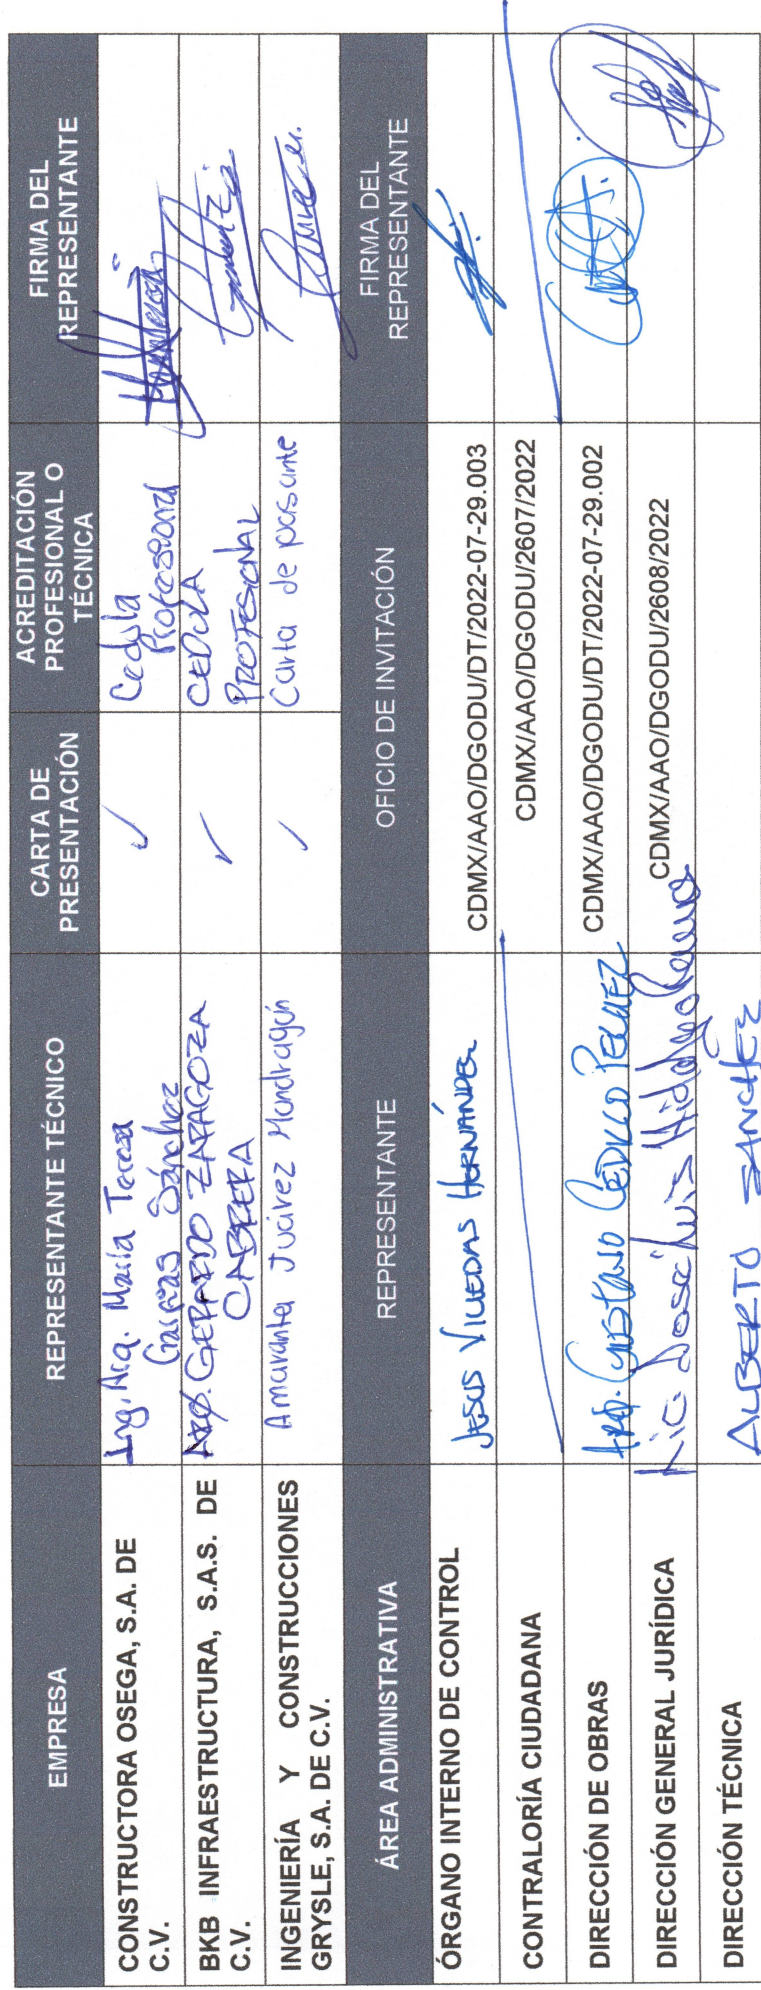 EMPRESA
REPRESENTANTE TÉCNICO
CARTA DE
PRESENTACIÓN
ACREDITACIÓN
PROFESIONAL O
TÉCNICA
FIRMA DEL
REPRESENTANTE
CONSTRUCTORA OSEGA, S.A. DE
C.V.
Ing. Arq. María Teresa
Sánchez
✓
Cedula
Profesional
BKB INFRAESTRUCTURA, S.A.S. DE
C.V.
ARQ. GERARDO ZARAGOZA
CABRERA
✓
CEDULA
PROFESIONAL
INGENIERÍA Y CONSTRUCCIONES
GRYSLE, S.A. DE C.V.
Amaranta Juárez Mondragón
Carta de pasante
ÁREA ADMINISTRATIVA
REPRESENTANTE
OFICIO DE INVITACIÓN
FIRMA DEL
REPRESENTANTE
ÓRGANO INTERNO DE CONTROL
JESUS VILLEDAS HERNÁNDEZ
CDMX/AAO/DGODU/DT/2022-07-29.003
CONTRALORÍA CIUDADANA
CDMX/AAO/DGODU/2607/2022
DIRECCIÓN DE OBRAS
ARQ. GUSTAVO CEDILLO PELAEZ
CDMX/AAO/DGODU/DT/2022-07-29.002
DIRECCIÓN GENERAL JURÍDICA
Lic. José Luis Hidalgo
CDMX/AAO/DGODU/2608/2022
DIRECCIÓN TÉCNICA
ALBERTO SANCHEZ